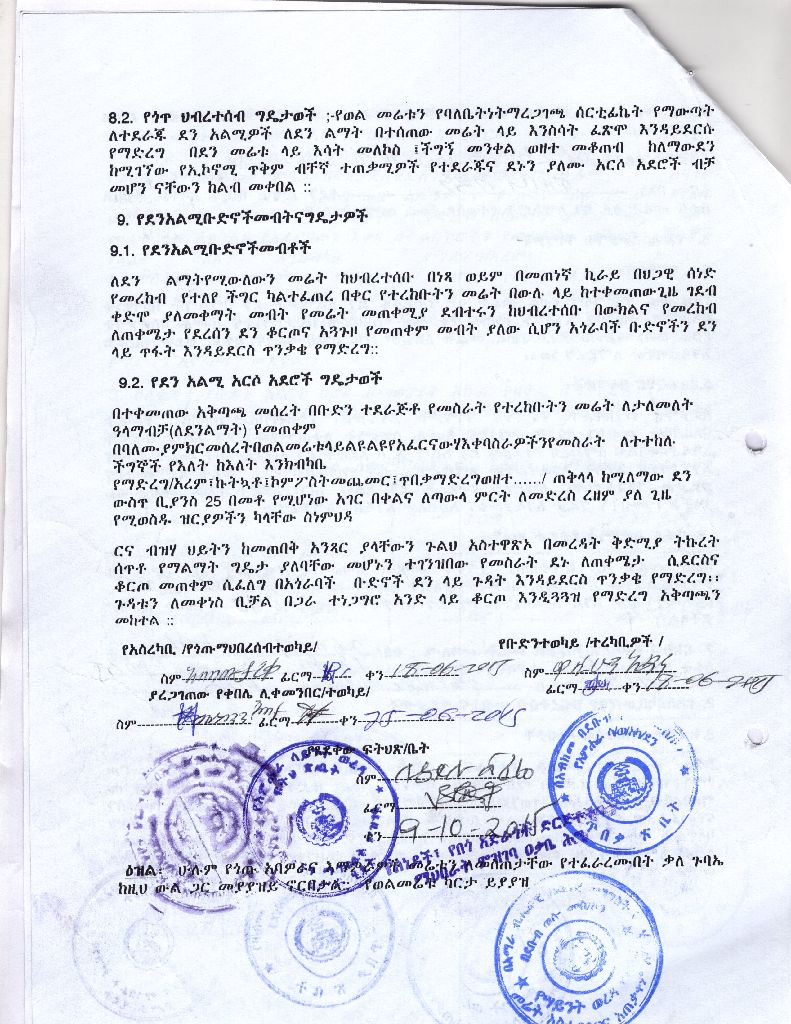 8.2. የጎጥ ህብረተሰብ ግዴታወች ;-የወል መሬቱን የባለቤትነትማረጋገጫ ሰርቲፊኬት የማውጣት
ለተደራጁ ደን አልሚዎች ለደን ልማት በተሰጠው መሬት ላይ እንስሳት ፈጽሞ እንዳይደርሱ
የማድረግ በደን መሬቱ ላይ እሳት መለኮስ ፤ችግኝ መንቀል ወዘተ መቆጠብ ከለማውደን
ከሚገኘው የኢኮኖሚ ጥቅም ብቸኛ ተጠቃሚዎች የተደራጁና ደኑን ያለሙ አርሶ አደሮች ብቻ
መሆን ናቸውን ከልብ መቀበል ፡፡
9. የደንአልሚቡድኖችመብትናግዴታዎች
9.1. የደንአልሚቡድኖችመብቶች
ለደን ልማትየሚውለውን መሬት ከህብረተሰቡ በነጻ ወይም በመጠነኛ ኪራይ በህጋዊ ሰነድ
የመረከብ የተለየ ችግር ካልተፈጠረ በቀር የተረከቡትን መሬት በውሉ ላይ ከተቀመጠውጊዜ ገደብ
ቀድሞ ያለመቀማት መብት የመሬት መጠቀሚያ ደብተሩን ከህብረተሰቡ በውክልና የመረከብ
ለጠቀሜታ የደረሰን ደን ቆርጦና አጓጉዞ የመጠቀም መብት ያለው ሲሆን አጎራባች ቡድኖችን ደን
ላይ ጥፋት እንዳይደርስ ጥንቃቄ የማድረግ፡፡
9.2. የደን አልሚ አርሶ አደሮች ግዴታወች
በተቀመጠው አቅጣጫ መሰረት በቡድን ተደራጅቶ የመስራት የተረከቡትን መሬት ለታለመለት
ዓላማብቻ(ለደንልማት) የመጠቀም
በባለሙያምክርመሰረትበወልመሬቱላይልዩልዩየአፈርናውሃእቀባስራዎችንየመስራት ለተተከሉ
ችግኞች የእለት ከእለት እንክብካቤ
የማድረግ/አረም፤ኩትኳቶ፤ኮምፖስትመጨመር፤ጥበቃማድረግወዘተ....../ ጠቅላላ ከሚለማው ደን
ውስጥ ቢያንስ 25 በመቶ የሚሆነው አገር በቀልና ለጣውላ ምርት ለመድረስ ረዘም ያለ ጊዜ
የሚወስዱ ዝርያዎችን ካላቸው ስነምህዳ
ርና ብዝሃ ህይትን ከመጠበቅ አንጻር ያላቸውን ጉልህ አስተዋጽኦ በመረዳት ቅድሚያ ትኩረት
ሰጥቶ የማልማት ግዴታ ያለባቸው መሆኑን ተገንዝበው የመስራት ደኑ ለጠቀሜታ ሲደርስና
ቆርጦ መጠቀም ሲፈለግ በአጎራባች ቡድኖች ደን ላይ ጉዳት እንዳይደርስ ጥንቃቄ የማድረግ፡፡
ጉዳቱን ለመቀነስ ቢቻል በጋራ ተነጋግሮ አንድ ላይ ቆርጦ እንዲጓጓዝ የማድረግ አቅጣጫን
መከተል ፡፡
የአስረካቢ /የጎጡማህበረሰብተወካይ/ የቡድንተወካይ /ተረካቢዎች /
ስም ፊርማ ቀን 18-06-2015 ስም
ፊርማ ቀን 18-06-2015
ያረጋገጠው የቀበሌ ሊቀመንበር/ተወካይ/
ስም ፊርማ ቀን
ያጸደቀው ፍትህጽ/ቤት
ስም
ፊርማ
ቀን 9-10-2015
ዕዝል፡ ሁሉም የጎጡ አባዎራና እማዎራዎች መሬቱን ለመስጠታቸው የተፈራረሙበት ቃለ ጉባኤ
ከዚህ ውል ጋር መያያዝይ ኖርበታል፡፡ የወልመሬቱ ካርታ ይያያዝ